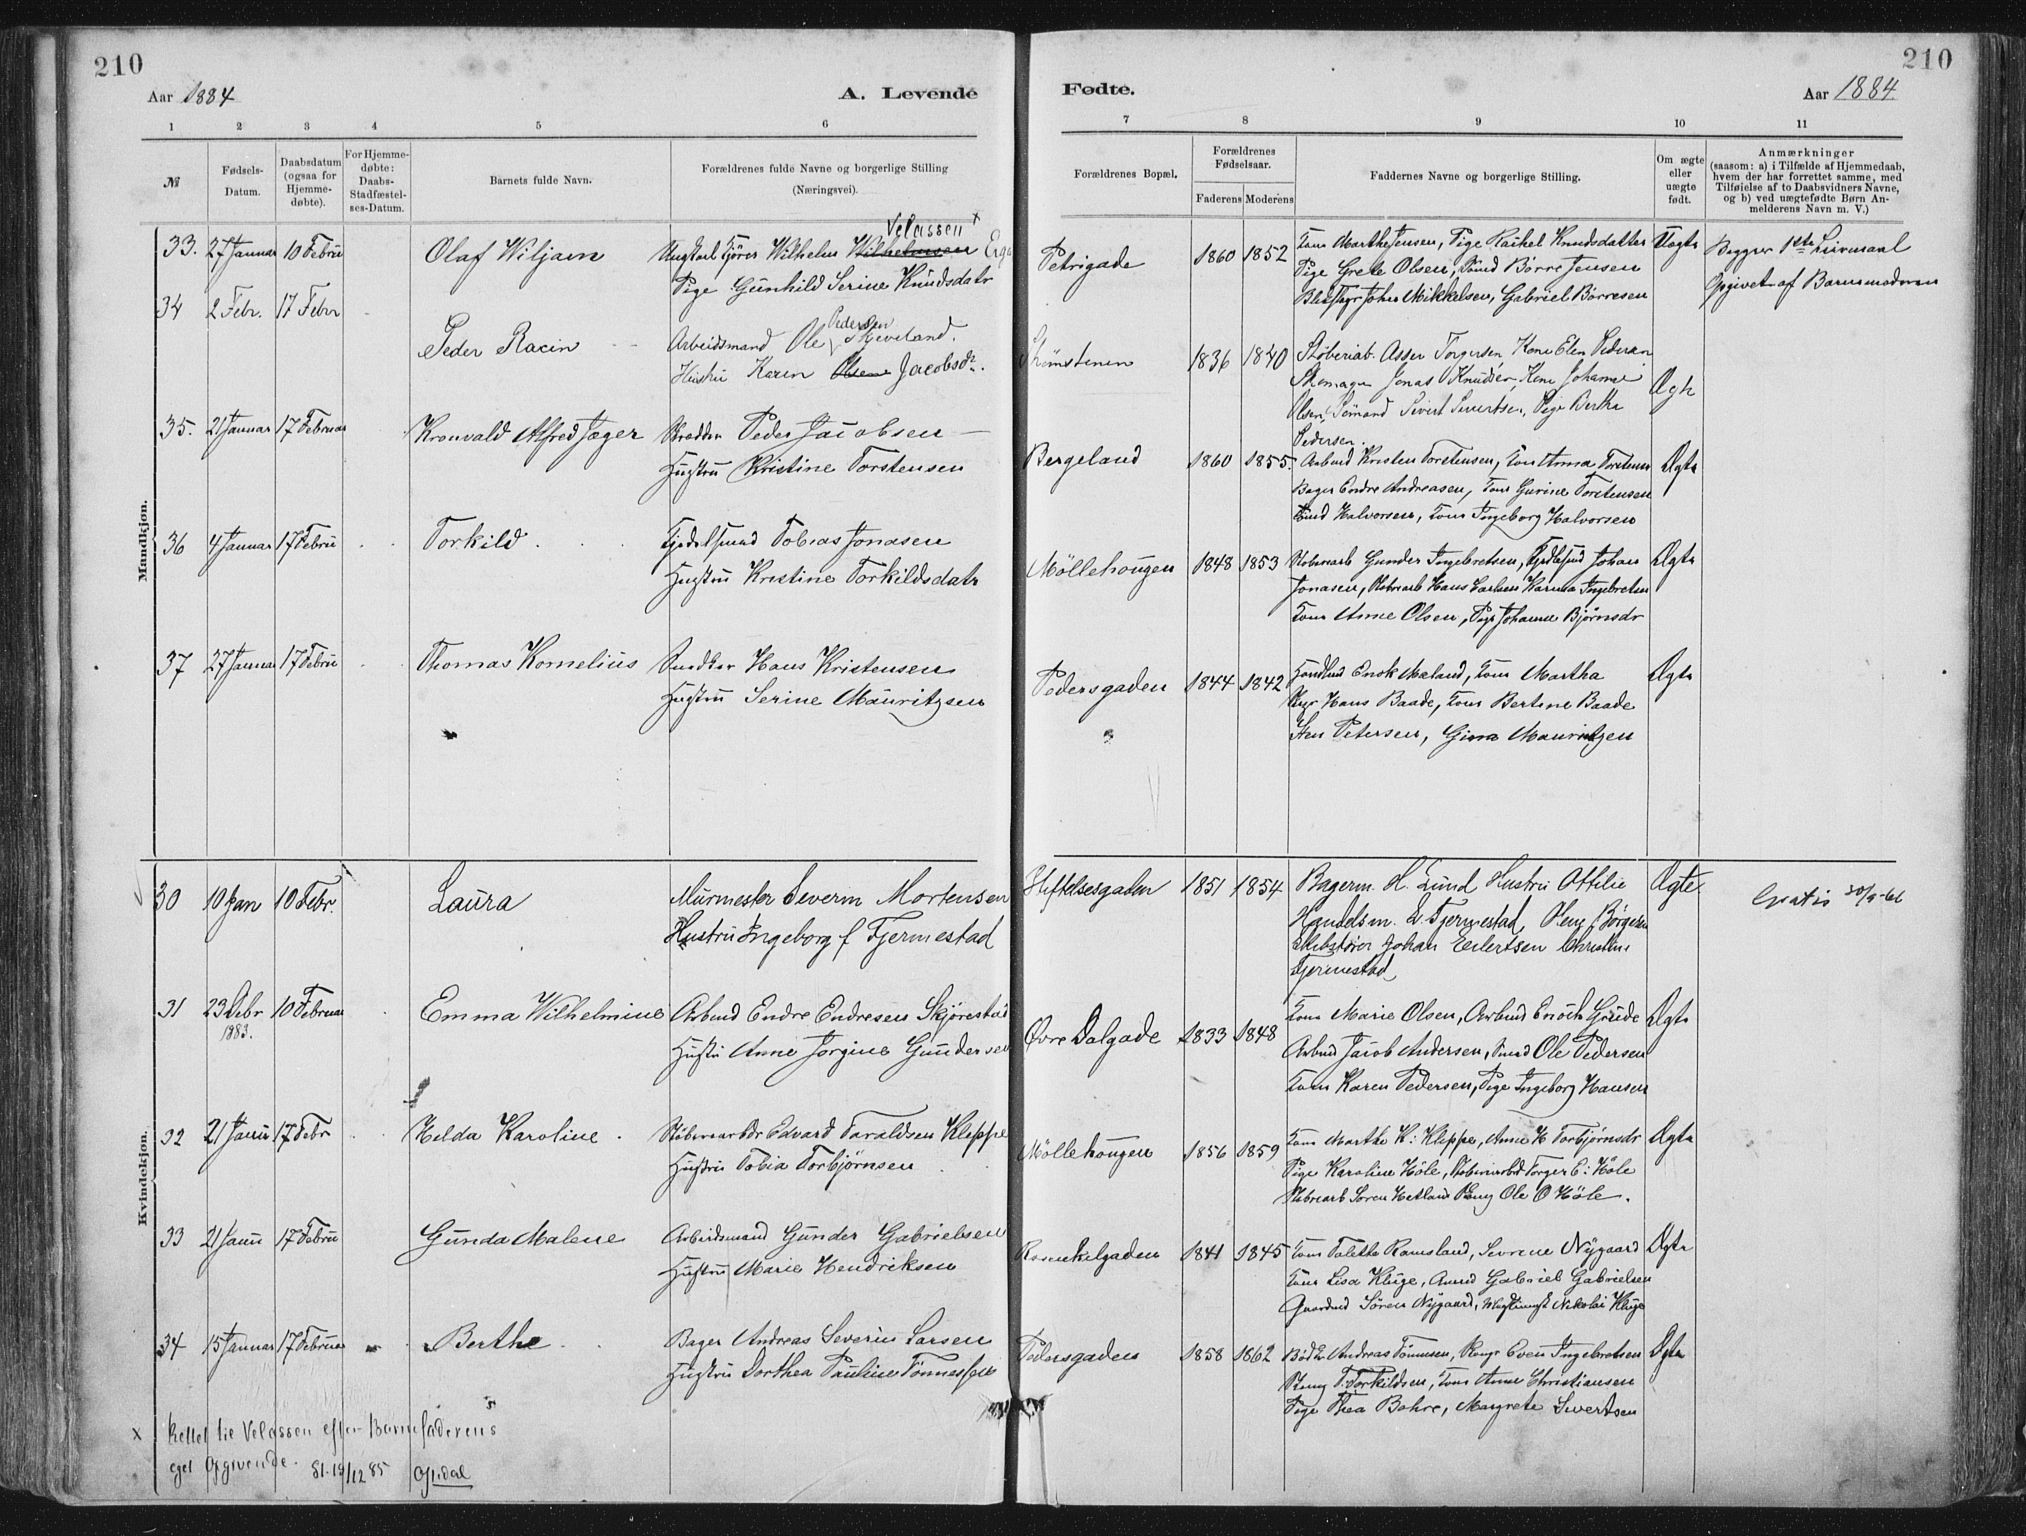 210
210
Aar 1884
A. Levende
Fødte.
Aar 1884
1 2 3 4 5 6 7 8 9 10 11
№
Fødsels-
Datum.
Daabsdatum
(ogsaa for
Hjemme-
døbte).
For Hjemme-
døbte:
Daabs-
Stadfæstel-
ses-Datum.
Barnets fulde Navn.
Forældrenes fulde Navne og borgerlige Stilling
(Næringsvei).
Forældrenes Bopæl.
Forældrenes
Fødselsaar.
Faderens Moderens
Faddernes Navne og borgerlige Stilling.
Om ægte
eller
uægte
født.
Anmærkninger
(saasom: a) i Tilfælde af Hjemmedaab,
hvem der har forrettet samme, med
Tilføielse af to Daabsvidners Navne,
og b) ved uægtefødte Børn An-
melderens Navn m. V.)
Mandkjøn.
Velassen x
33. 27 Januar 10 Febru Olaf Wiljam Ungkarl Wilhelm Wilhelmsen
Pige Gunhild Serine Knudsdatr
Petrigade 1860 1852 Kone Marthe Jensen, Pige Raikel Knudsdatter Uægte
Pige Grete Olsen, Børre Jensen
Johan Mikkelsen, Gabriel Børresen
Begges 1ste Leiermaal
Opgivet af Barnemoderen
34 2 Febr. 17 Febr Peder Racin Arbeidsmand Ole Pedersen Skjeveland.
Hustru Karen Olsen Jacobsdr.
Strømstenen 1836 1840 Støberiab. Asser Torgersen, Kone Elen Pedersen
Skomager Jonas Knudsen, Kone Johanne Ægte
Olsen, Sømand Sivert Sivertsen, Pige Bertha
Pedersen.
35. 21 Januar 17 Februar Kronvald Alfred Jæger Skrædder Peder Jacobsen
Hustru Kristine Torstensen
Bergeland 1860 1855. Arbmd Kristen Torstensen, Kone Anna Torstensen Ægte
Bager Endre Andreasen, Kone Gurine Torstensen
Halvorsen, Kone Ingeborg Halvorsen
36 4 Januar 17 Febru Torkild Tobias Jonasen
Hustru Kristine Torkildsdatr
Möllehougen 1848 1853 Støberiarb Gunder Ingebretsen, Johan Ægte
Jonasen, Støberiarb Hans Larsen Karina Ingebretsen
Kone Anne Olsen, Pige Johanne Bjørnsdr
37 27 Januar 17 Febru Thomas Kornelius Snedker Hans Kristensen
Hustru Serine Mauritzsen
Pedersgaden 1844 1842 Enok Meland, Kone Martha Ægte
Hans Baade, Kone Bertine Baade
Sten Petersen, Gina Mauritzen
Kvindekjøn.
30 10 Jan 10 Febr. Laura Murmester Severin Mortensen
Hustru Ingeborg f. Tjermestad
Stiftelsesgaden 1851 1854 Bagerm. H. Lund Hustru Ottilie Ægte
Handelsm. L. Tjermestad,
Johan Eilertsen Christine
Tjermestad
Gratis 30/9-66
31 23 Debr 10 Februar Emma Wilhelmine Arbmd Endre Endresen Skjørestad
1883.
Hustru Anne Jorgine Gundersen
Øvre Dalgade 1833 1848 Kone Marie Olsen, Arbmd Enoch Grude Ægte
Arbmd Jacob Andersen, Smed Ole Pedersen
Kone Karen Pedersen, Pige Ingeborg Hansen
32 21 Janu 17 Febr Helda Karoline. Støberiarbdr Edvard Taraldsen Kleppe
Hustru Tobia Torbjørnsen
Möllehougen 1856 1859 Kone Marthe K: Kleppe, Anne H Torbjørnsdr Ægte
Pige Karoline Höle, Støberiarbd Torger E: Höle
Støberiarb Søren Hetland Ole O Höle.
33 21 Janu 17 Febru Gunda Malene Arbeidsmand Gunder Gabrielsen
Hustru Marie Hendriksen
Rosenkelgaden 1841 1845 Kone Talette Ramsland, Severine Nygaard Ægte
Kone Lisa Kluge, Gabriel Gabrielsen
Gaardmd Søren Nygaard, Nikolai Kluge
34 15 Januar 17 Februar Berthe Bager Andreas Severin Larsen
Hustru Dorthea Pauline Tönnessen
Pedersgaden 1858 1862 Andreas Tönnesen, Even Ingebretsen Ægte
T: Torkildsen, Kone Anne Christiansen
Pige Thea Bohre, Margrete Sivertsen
x Rettet til Velassen efter Barnefaderens
eget Opgivende. 19/12 85 Opdal